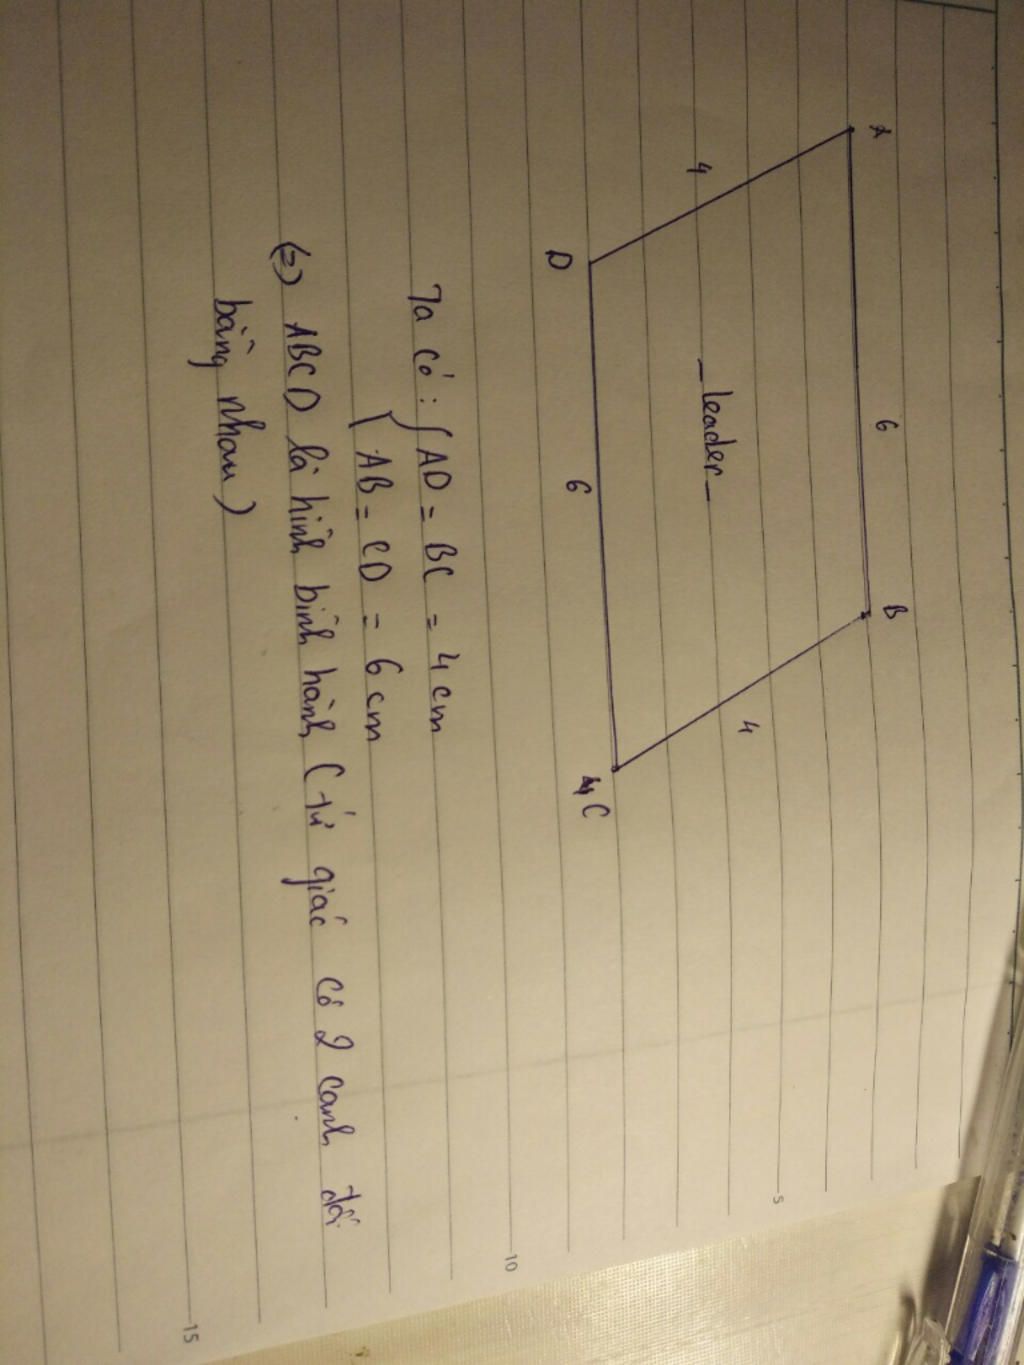 A 6 B
4 4
-leader-
D 6 C
Ta có: { AD = BC = 4 cm
{ AB = CD = 6 cm
(=) ABCD là hình bình hành (tứ giác có 2 cạnh đối
bằng nhau)
5
10
15